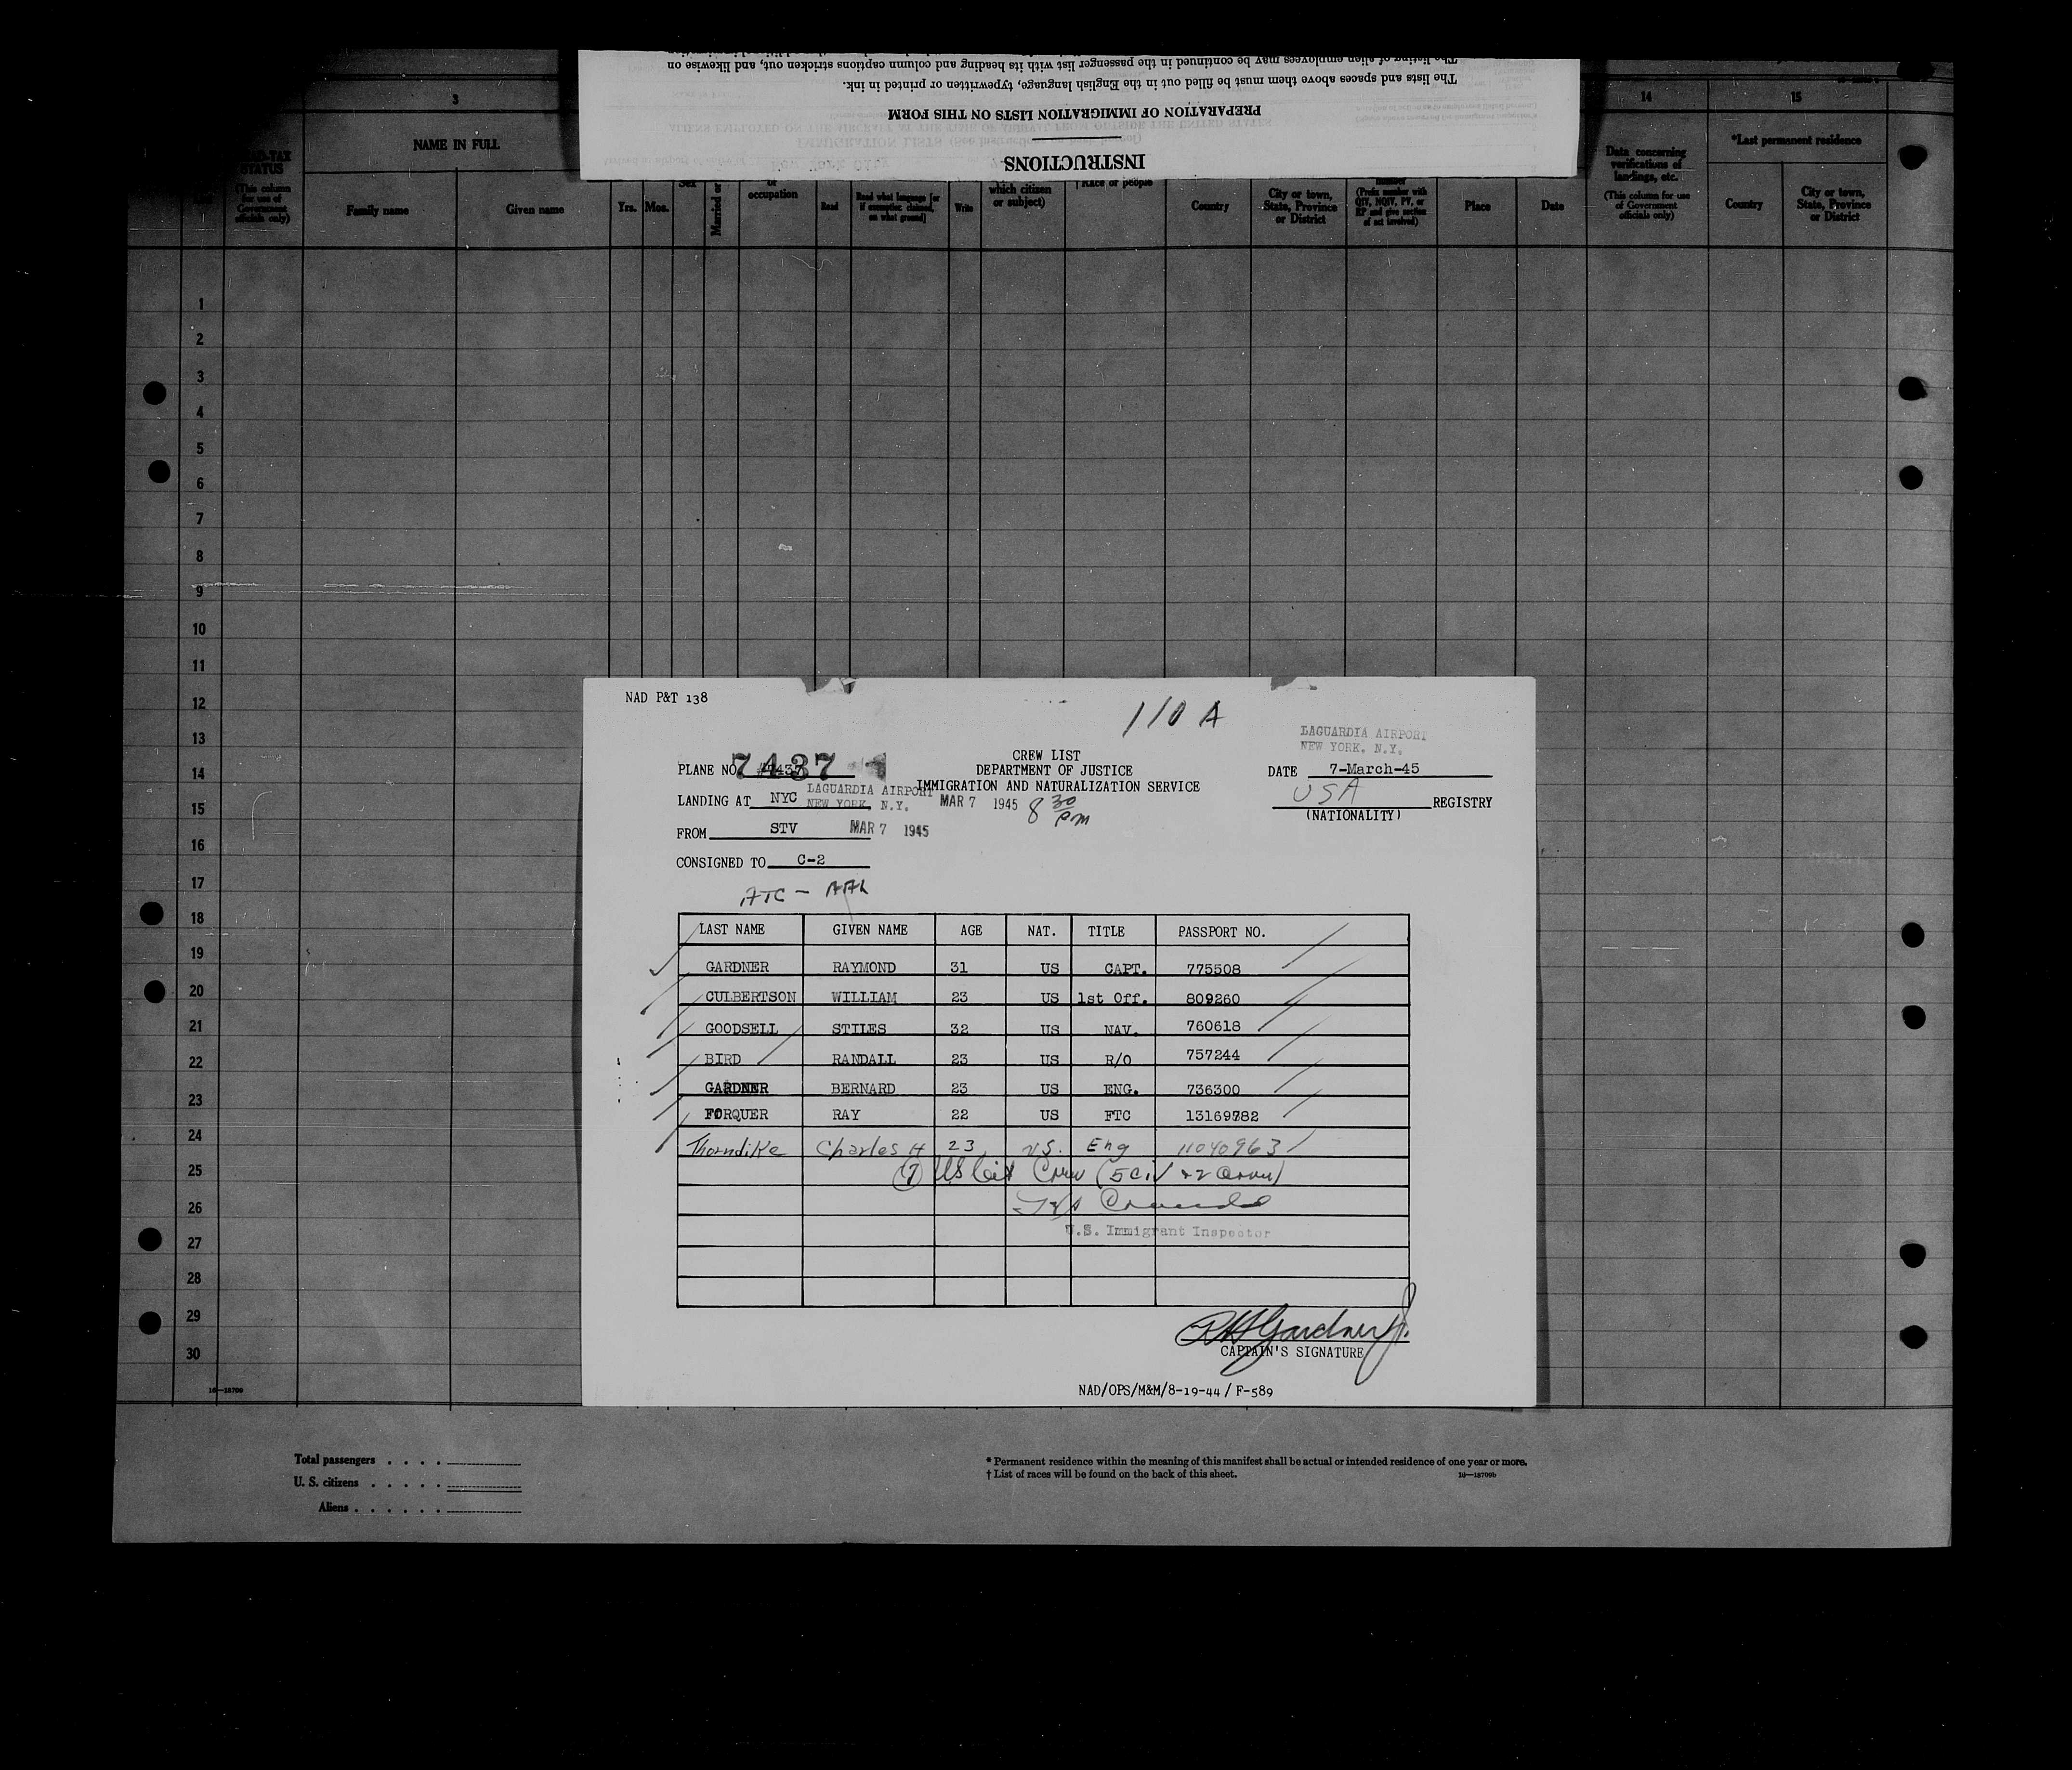 The listing of alien employees may be continued in the passenger list with its heading and column captions stricken out, and likewise on
The lists and spaces above them must be filled out in the English language, typewritten or printed in ink.
PREPARATION OF IMMIGRATION LISTS ON THIS FORM
INSTRUCTIONS
3 14 15
STATUS
(This column for use of Government officials only)
NAME IN FULL
Family name Given name
Yrs. Mos.
Sex
Married or
or occupation
Read Read what language [or if exemption claimed, on what ground] Write
which citizen or subject)
† Race or people
Country City or town, State, Province or District
(Prefix number with QIV, NQIV, PV, or RP and give section of act involved)
Place Date
Data concerning verifications of landings, etc.
(This column for use of Government officials only)
*Last permanent residence
Country City or town, State, Province or District
1
2
3
4
5
6
7
8
9
10
11
12
13
14
15
16
17
18
19
20
21
22
23
24
25
26
27
28
29
30
16—18709
NAD P&T 138
110 A
LAGUARDIA AIRPORT
NEW YORK, N.Y.
CREW LIST
DEPARTMENT OF JUSTICE
IMMIGRATION AND NATURALIZATION SERVICE
PLANE NO. 7437
DATE 7-March-45
LANDING AT NYC LAGUARDIA AIRPORT NEW YORK, N.Y. MAR 7 1945 8 30 pm
USA REGISTRY
(NATIONALITY)
FROM STV MAR 7 1945
CONSIGNED TO C-2
ATC - AAL
LAST NAME GIVEN NAME AGE NAT. TITLE PASSPORT NO.
GARDNER RAYMOND 31 US CAPT. 775508
CULBERTSON WILLIAM 23 US 1st Off. 809260
GOODSELL STILES 32 US NAV. 760618
BIRD RANDALL 23 US R/O 757244
GARDNER BERNARD 23 US ENG. 736300
FORQUER RAY 22 US FTC 13169782
Thorndike Charles H 23 U.S. Eng 11040963
7 US Cit Crew (5 Civ + 2 Army)
U.S. Immigrant Inspector
RH Gardner Jr.
CAPTAIN'S SIGNATURE
NAD/OPS/M&M/8-19-44/ F-589
Total passengers . . . .
U. S. citizens . . . . .
Aliens . . . . . .
* Permanent residence within the meaning of this manifest shall be actual or intended residence of one year or more.
† List of races will be found on the back of this sheet.
16—18709b